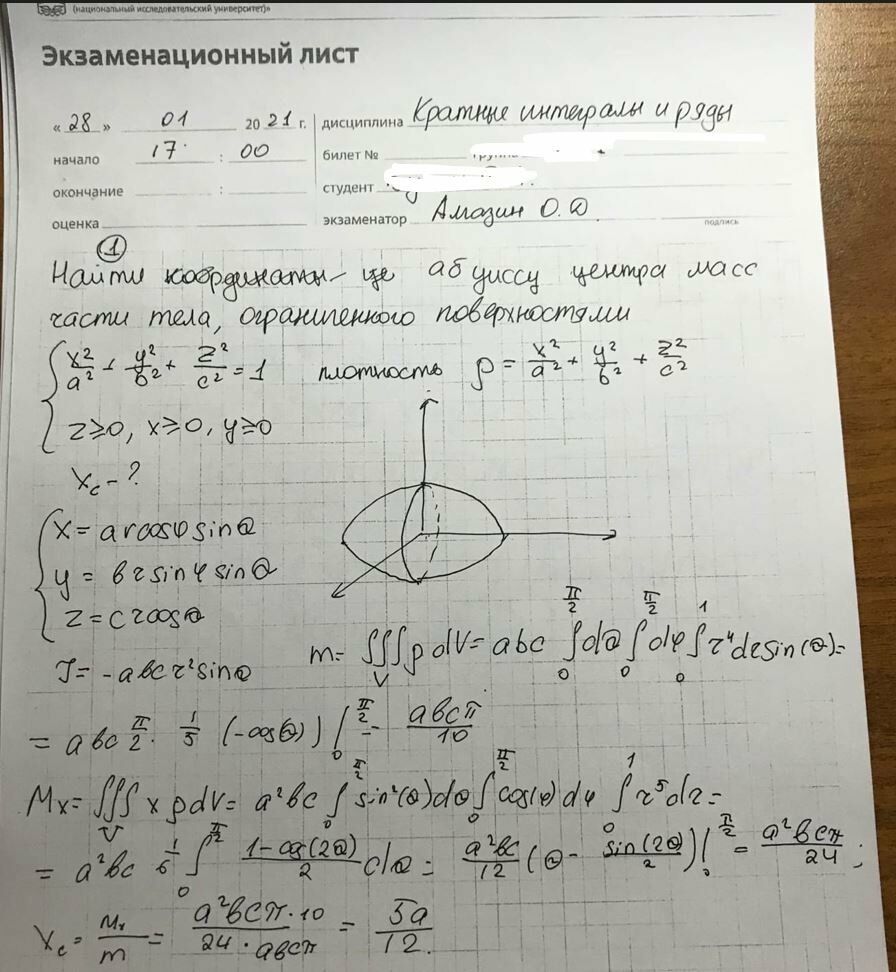 (национальный исследовательский университет)»
Экзаменационный лист
« 28 » 01 20 21 г. дисциплина Кратные интегралы и ряды
начало 17 : 00 билет №
окончание : студент
оценка экзаменатор Амозин О.Д. подпись
①
Найти абциссу центра масс
части тела, ограниченного поверхностями
{ x²/a² + y²/b² + z²/c² = 1 плотность ρ = x²/a² + y²/b² + z²/c²
z≥0, x≥0, y≥0
Xc - ?
{ x = a r cosφ sinθ
y = b r sinφ sinθ
z = c r cosθ
J = -abc r² sinθ m = ∭_V ρ dV = abc ∫_0^{π/2} dθ ∫_0^{π/2} dφ ∫_0^1 r⁴ dr sin(θ) =
= abc π/2 · 1/5 (-cosθ) |_0^{π/2} = abcπ/10
Mx = ∭_V x ρ dV = a²bc ∫_0^{π/2} sin²(θ) dθ ∫_0^{π/2} cos(φ) dφ ∫_0^1 r⁵ dr =
= a²bc 1/6 ∫_0^{π/2} (1-cos(2θ))/2 dθ = a²bc/12 (θ - sin(2θ)/2) |_0^{π/2} = a²bcπ/24 ;
Xc = Mx/m = a²bcπ·10/24·abcπ = 5a/12.